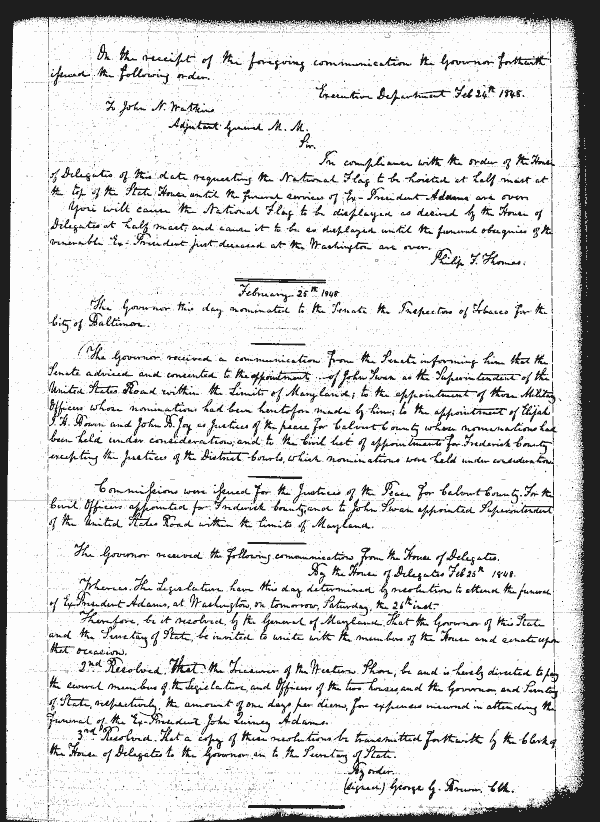 On the receipt of the foregoing communication the Governor forthwith
issued the following order.
Executive Department Feb 24th 1848.
To John N. Watkins
Adjutant General M. M.
Sir.
In compliance with the order of the House
of Delegates of this date requesting the National Flag to be hoisted at half mast at
the top of the State House until the funeral services of Ex-President Adams are over
You will cause the National Flag to be displayed as desired by the House of
Delegates at half mast, and cause it to be so displayed until the funeral obsequies of the
venerable Ex-President just deceased at the Washington are over.
Philip F. Thomas.
February 25th 1848
The Governor this day nominated to the Senate the Inspectors of Tobacco for the
City of Baltimore.
The Governor received a communication from the Senate informing him that the
Senate advised and consented to the appointment of John Swan as the Superintendent of the
United States Road within the Limits of Maryland; to the appointment of those Military
Officers whose nominations had been heretofore made by him; to the appointment of Elijah
and John as Justices of the peace for Calvert County whose nominations had
been held under consideration, and to the Civil list of appointments for Frederick County
excepting the Justices of the District Courts, which nominations were held under consideration
Commissions were issued for the Justices of the Peace for Calvert County. For the
Civil Officers appointed for Frederick County, and to John Swan appointed Superintendent
of the United States Road within the limits of Maryland.
The Governor received the following communication from the House of Delegates.
By the House of Delegates Feb 25th 1848.
Whereas. The Legislature have this day determined by resolution to attend the funeral
of Ex President Adams, at Washington, on tomorrow, Saturday, the 26th inst.
Therefore, be it resolved, by the General of Maryland. That the Governor of this State
and the Secretary of State, be invited to unite with the members of the House and senate upon
that occasion.
2nd Resolved. That the Treasurer of the Western Shore, be and is hereby directed to pay
the several members of the Legislature, and Officers of the two houses, and the Governor and Secretary
of State, respectively, the amount of one days per diem, for expenses incurred in attending the
Funeral of the Ex-President John Quincy Adams.
3rd Resolved. That a copy of these resolutions be transmitted forthwith by the Clerk of
the House of Delegates to the Governor and to the Secretary of State.
By order.
(signed) George G. Brewer. Clk.